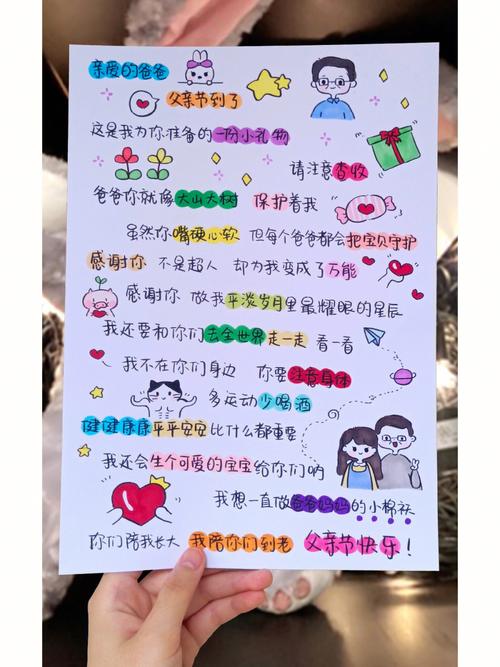 亲爱的爸爸
父亲节到了
这是我为你准备的一份小礼物
请注意查收
爸爸你就像大山大树 保护着我
虽然你嘴硬心软 但每个爸爸都会把宝贝守护
感谢你 不是超人 却为我变成了万能
感谢你 做我平淡岁月里最耀眼的星辰
我还要和你们去全世界走一走 看一看
我不在你们身边 你要注意身体
多运动少喝酒
健健康康平平安安比什么都重要
我还会生个可爱的宝宝给你们哟
我想一直做爸爸妈妈的小棉袄
你们陪我长大 我陪你们到老 父亲节快乐!